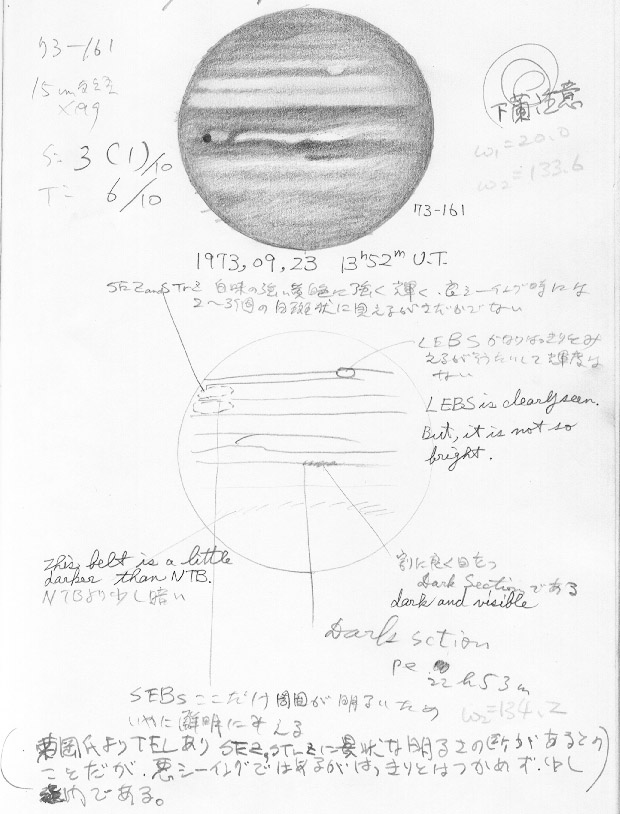 73-161
15cm反射
×199
S= 3 (1)/10
T= 6/10
下薗注意
ω1=20.0
ω2=133.6
73-161
1973,09,23 13h52m U.T.
SEZ and STrZ 白味の強い 強く輝く.良シーイング時には
2〜3個の白斑状に見えるがさだかでない
LEBSかなりはっきりとみ
えるが 輝度は
ない
LEBS is clearly seen.
But, it is not so
bright.
This belt is a little
darker than NTB.
NTBより少し暗い
割に良く目立つ
Dark Sectionである
dark and visible
Dark sction
22h53m
ω2=134.2
SEBs ここだけ周囲が明るいため
いやに鮮明にみえる
氏よりTELあり SEZ, STrZに 状な明るさの があるとの
ことだが.悪シーイングではあるがはっきりとはつかめず.
である。